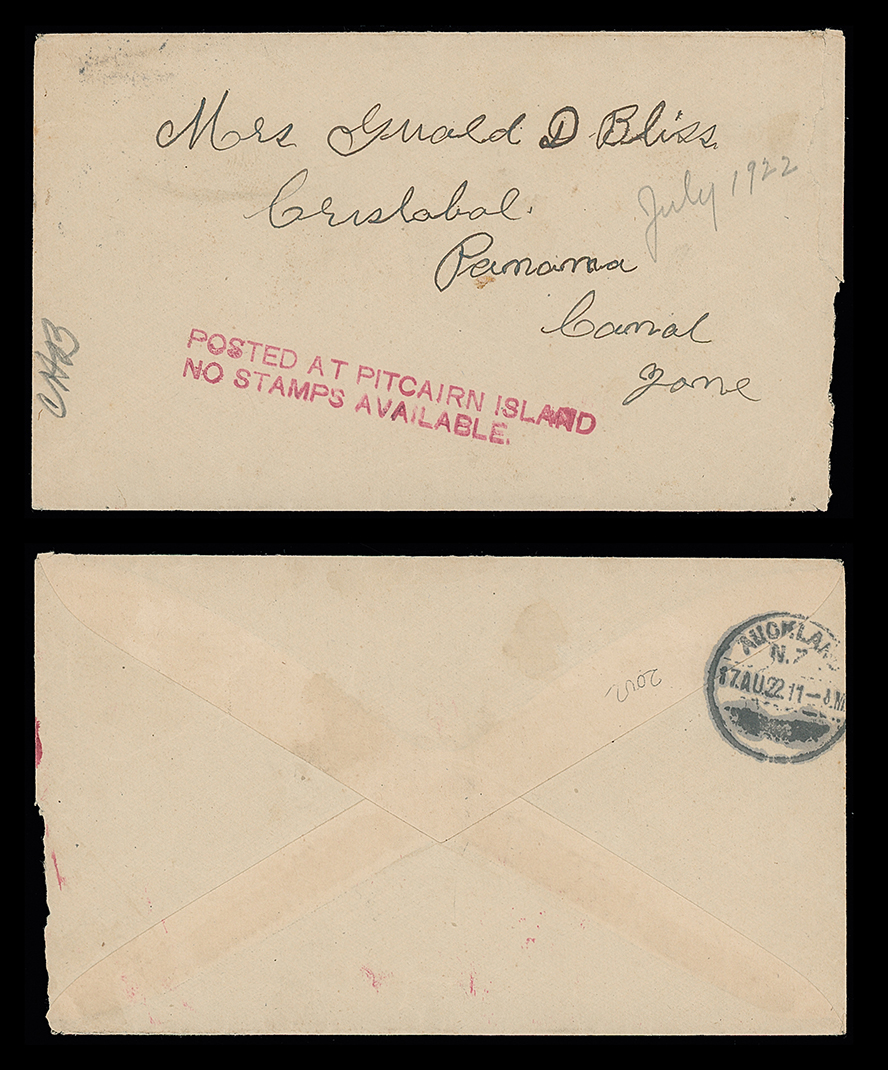 Mrs Gerald D Bliss
Cristobal.
July 1922
Panama
Canal
Zone
POSTED AT PITCAIRN ISLAND
NO STAMPS AVAILABLE.
AUCKLAND
N.Z
17.AU.22.11-